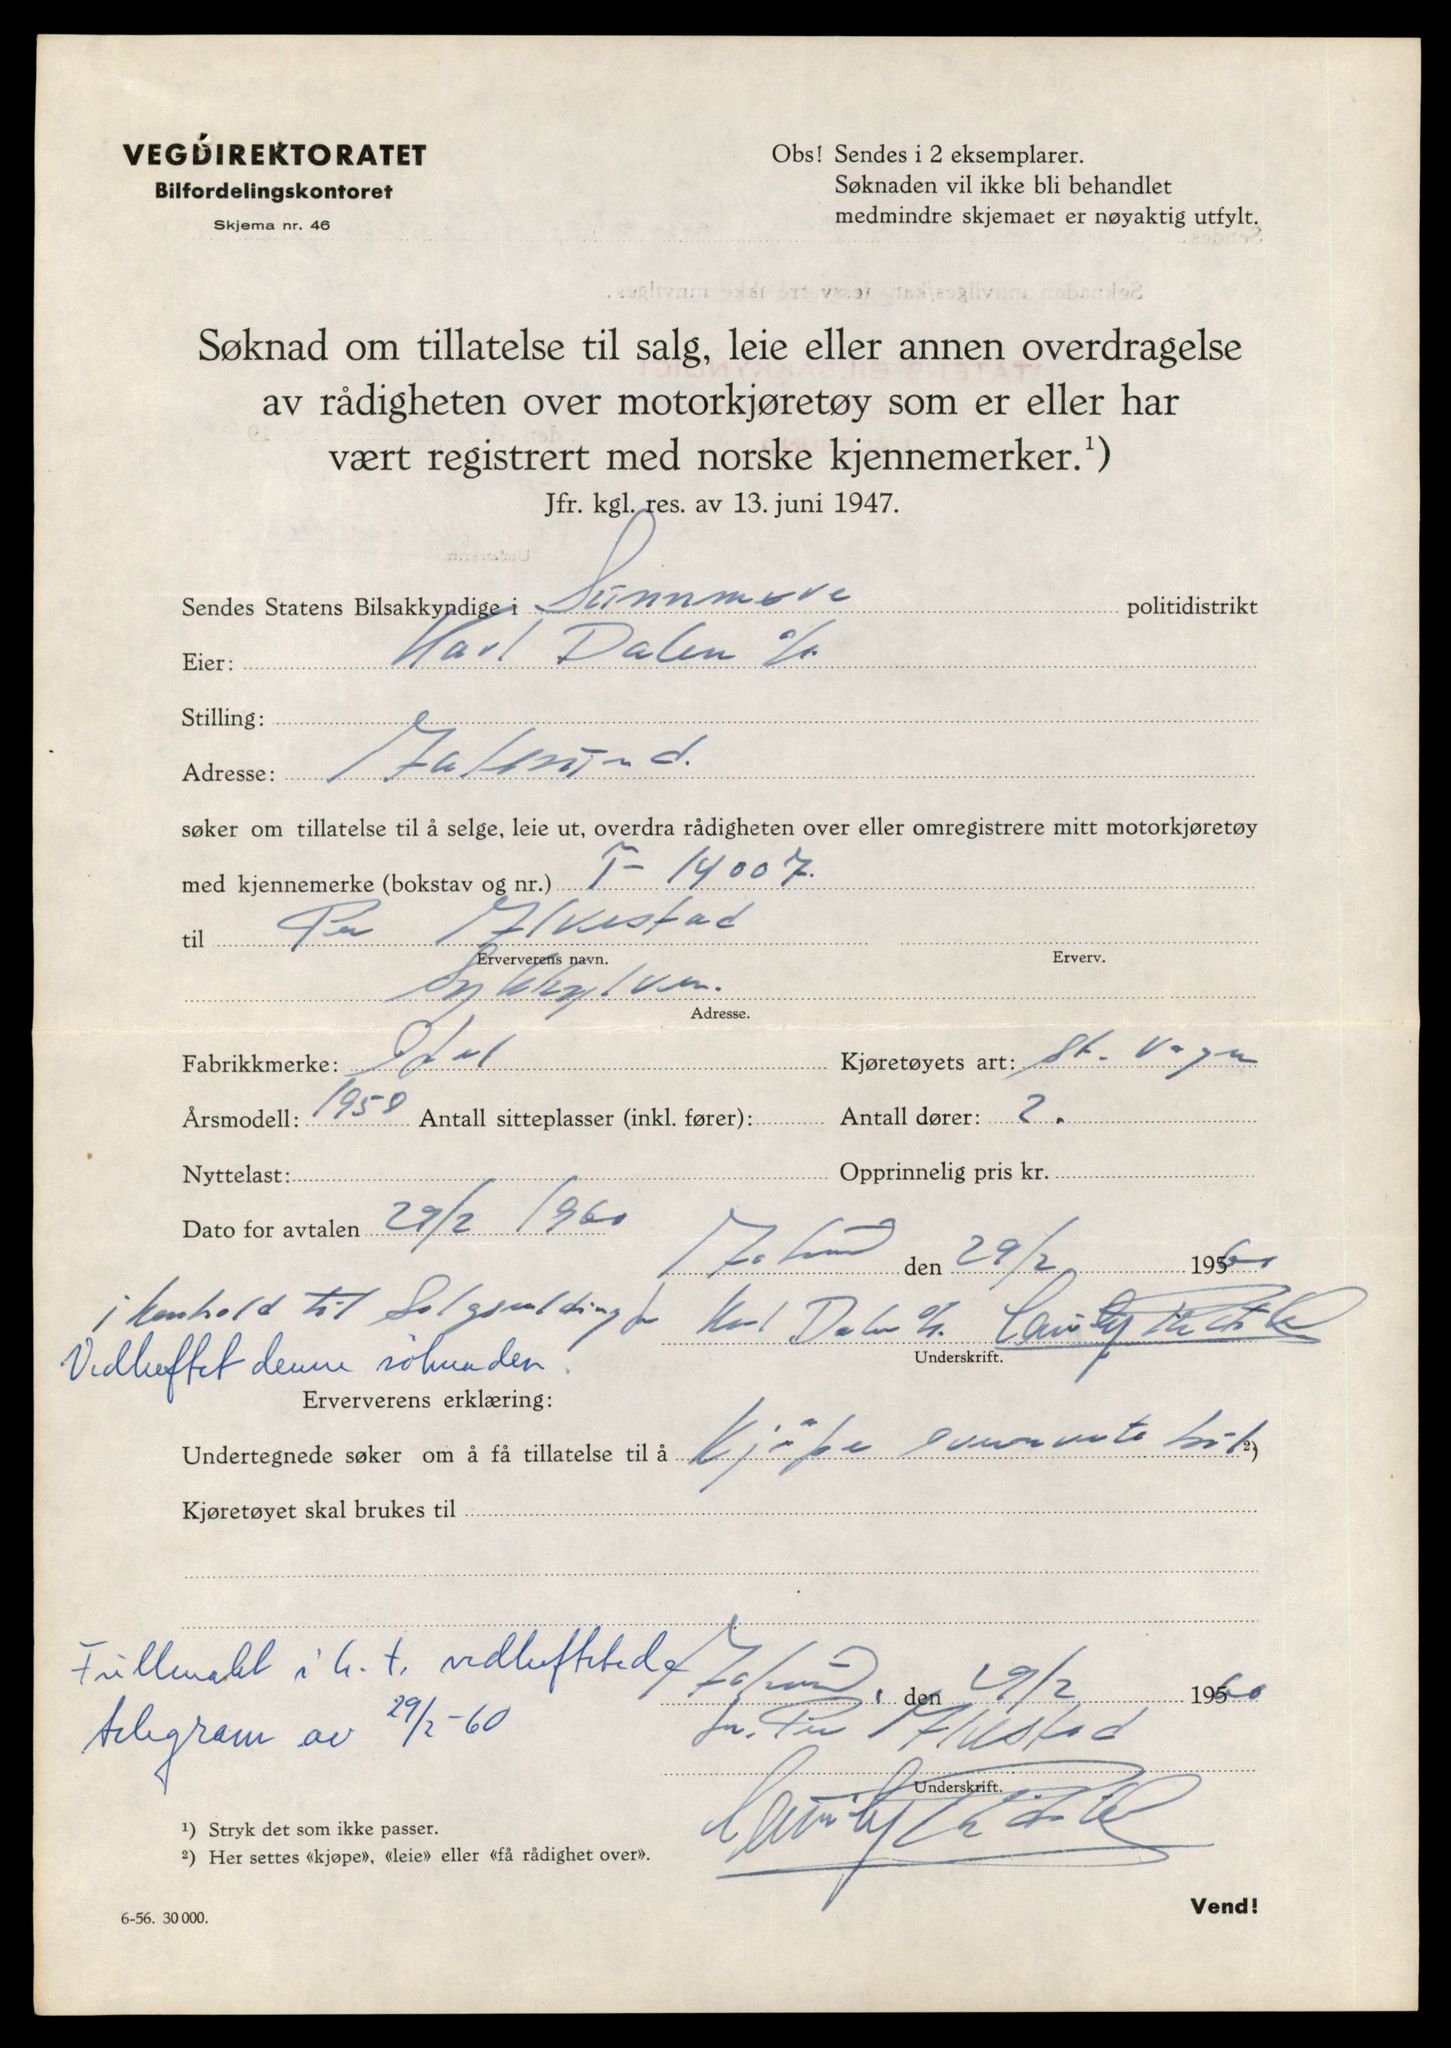 VEGDIREKTORATET
Bilfordelingskontoret
Skjema nr. 46
Obs! Sendes i 2 eksemplarer.
Søknaden vil ikke bli behandlet
medmindre skjemaet er nøyaktig utfylt.
Søknad om tillatelse til salg, leie eller annen overdragelse
av rådigheten over motorkjøretøy som er eller har
vært registrert med norske kjennemerker.¹)
Jfr. kgl. res. av 13. juni 1947.
Sendes Statens Bilsakkyndige i Sunnmøre politidistrikt
Eier: Karl Dalen
Stilling:
Adresse:
søker om tillatelse til å selge, leie ut, overdra rådigheten over eller omregistrere mitt motorkjøretøy
med kjennemerke (bokstav og nr.) T- 14007.
til Per Ilvestad
Erververens navn. Erverv.
Sykkylven.
Adresse.
Fabrikkmerke: Opel Kjøretøyets art: St. vogn
Årsmodell: 1958 Antall sitteplasser (inkl. fører): Antall dører: 2.
Nyttelast: Opprinnelig pris kr.
Dato for avtalen 29/2 1960
den 29/2 1960
i henhold til Salgsmelding
Karl Dalen
Vedheftet denne søknaden.
Underskrift.
Erververens erklæring:
Undertegnede søker om å få tillatelse til å Kjøpe ovennevnte bil ²)
Kjøretøyet skal brukes til
Fullmakt i h. t. vedheftede
telegram av 29/2-60
den 29/2 1960
Per Ilvestad
Underskrift.
¹) Stryk det som ikke passer.
²) Her settes «kjøpe», «leie» eller «få rådighet over».
Vend!
6-56. 30 000.